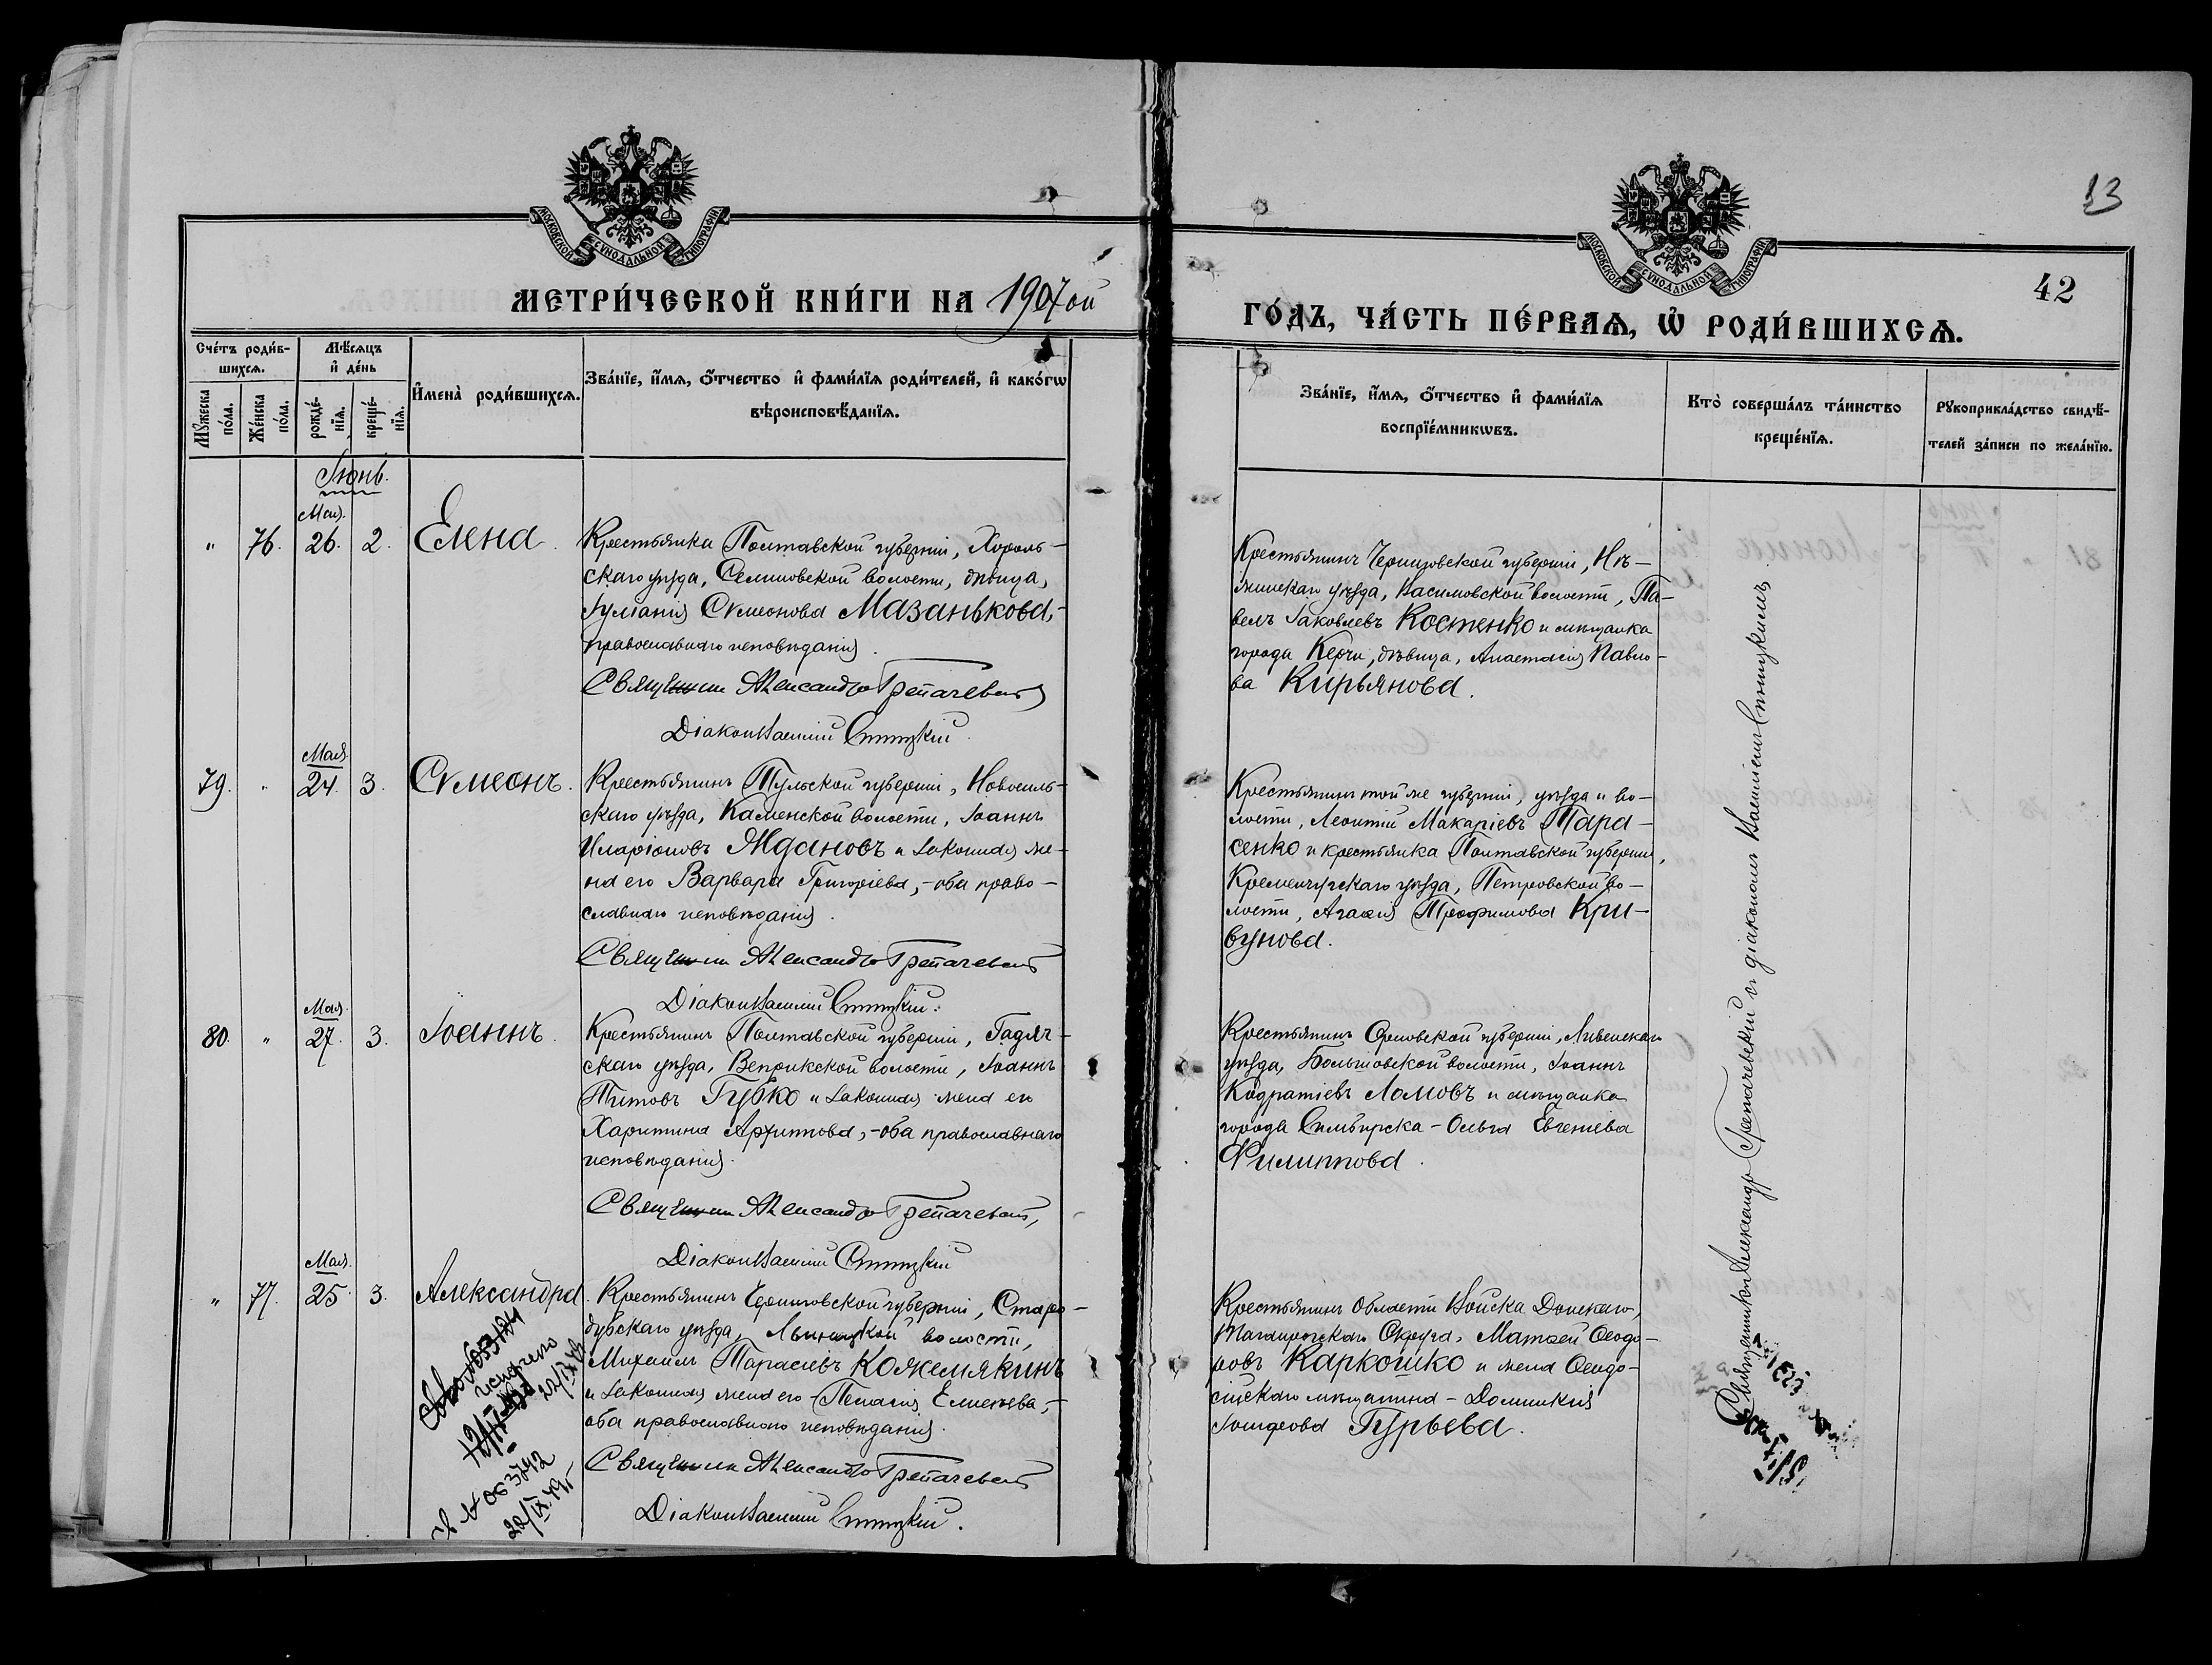 МОСКОВСКОЙ СѴНОДАЛЬНОЙ ТИПОГРАФІИ
МЕТРИ́ЧЕСКОЙ КНИ́ГИ НА 1907ой
Сче́тъ роди́в-
шихся.
Мꙋ́жеска по́ла.
Же́нска по́ла.
Мѣ́сяцъ и҆ де́нь
рожде́-
нїѧ.
креще́-
нїѧ.
И҆мена̀ роди́вшихсѧ.
Зва́нїе, и҆́мѧ, ѻ҆́тчество и҆ фами́лїѧ роди́телей, и҆ како́гѡ
вѣроисповѣ́данїѧ.
Іюнь.
Мая.
" 76. 26. 2. Елена.
Крестьянка Полтавской губерніи, Хороль-
скаго уѣзда, Семиновской волости, дѣвица,
Іуліанія Сѵмеонова Мазанькова,-
православнаго исповѣданія.
Священник Александр Трепачевскій
Діаконъ Василій Ситицкій.
Мая
79. " 24. 3. Сѵмеонъ.
Крестьянинъ Тульской губерніи, Новосиль-
скаго уѣзда, Каменской волости, Іоаннъ
Иларіоновъ Ждановъ и законная же-
на его Варвара Григоріева,-оба право-
славнаго исповѣданія.
Священник Александр Трепачевскій
Діаконъ Василій Ситицкій.
Мая.
80. " 27. 3. Іоаннъ.
Крестьянинъ Полтавской губерніи, Гадяч-
скаго уѣзда, Веприкской волости, Іоаннъ
Титовъ Губко и законная жена его
Харитина Архиппова,-оба православнаго
исповѣданія.
Священник Александр Трепачевскій,
Діаконъ Василій Ситицкій
Мая.
" 77. 25. 3. Александра.
Крестьянинъ Черниговской губерніи, Старо-
дубскаго уѣзда, волости,
Михаилъ Тарасіевъ Кожемякинъ
и законная жена его-Пелагія Елисеева,-
оба православнаго исповѣданія.
Священник Александр Трепачевскій
Діаконъ Василій Ситицкій.
22/IX
22/IX
13
42
МОСКОВСКОЙ СѴНОДАЛЬНОЙ ТИПОГРАФІИ
ГО́ДЪ, ЧА́СТЬ ПЕ́РВАѦ, Ѡ҆ РОДИ́ВШИХСѦ.
Зва́нїе, и҆́мѧ, ѻ҆́тчество и҆ фами́лїѧ
воспрїе́мникѡвъ.
Кто̀ соверша́лъ та́инство
креще́нїѧ.
Рꙋкоприкла́дство свидѣ́-
телей за́писи по жела́нїю.
Крестьянинъ Черниговской губерніи, Нѣ-
жинскаго уѣзда, волости, Па-
велъ Іаковлевъ Костенко и мѣщанка
города Керчи, дѣвица, Анастасія Павло-
ва Кирьянова.
Крестьянинъ той же губерніи, уѣзда и во-
лости, Леонтій Макаріевъ Тара-
сенко и крестьянка Полтавской губерніи,
Кременчугскаго уѣзда, Петровской во-
лости, Агафія Трофимова Кри-
вунова.
Крестьянинъ Орловской губерніи, Ливенскаго
уѣзда, волости, Іоаннъ
Кодратіевъ Ломовъ и мѣщанка
города Симбирска-Ольга Евгеніева
Филиппова.
Крестьянинъ Области Войска Донскаго,
Таганрогскаго Округа, Матѳей Ѳеодо-
ровъ Каркошко и жена Ѳеодо-
сійскаго мѣщанина-Домникія
Іосифова Гурьева.
Священникъ Александръ Трепачевскій съ діакономъ Василіемъ Ситицкимъ.